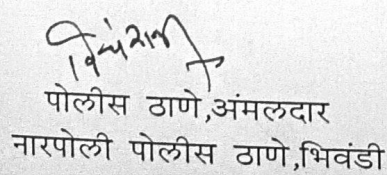 पोलीस ठाणे,अंमलदार
नारपोली पोलीस ठाणे,भिवंडी